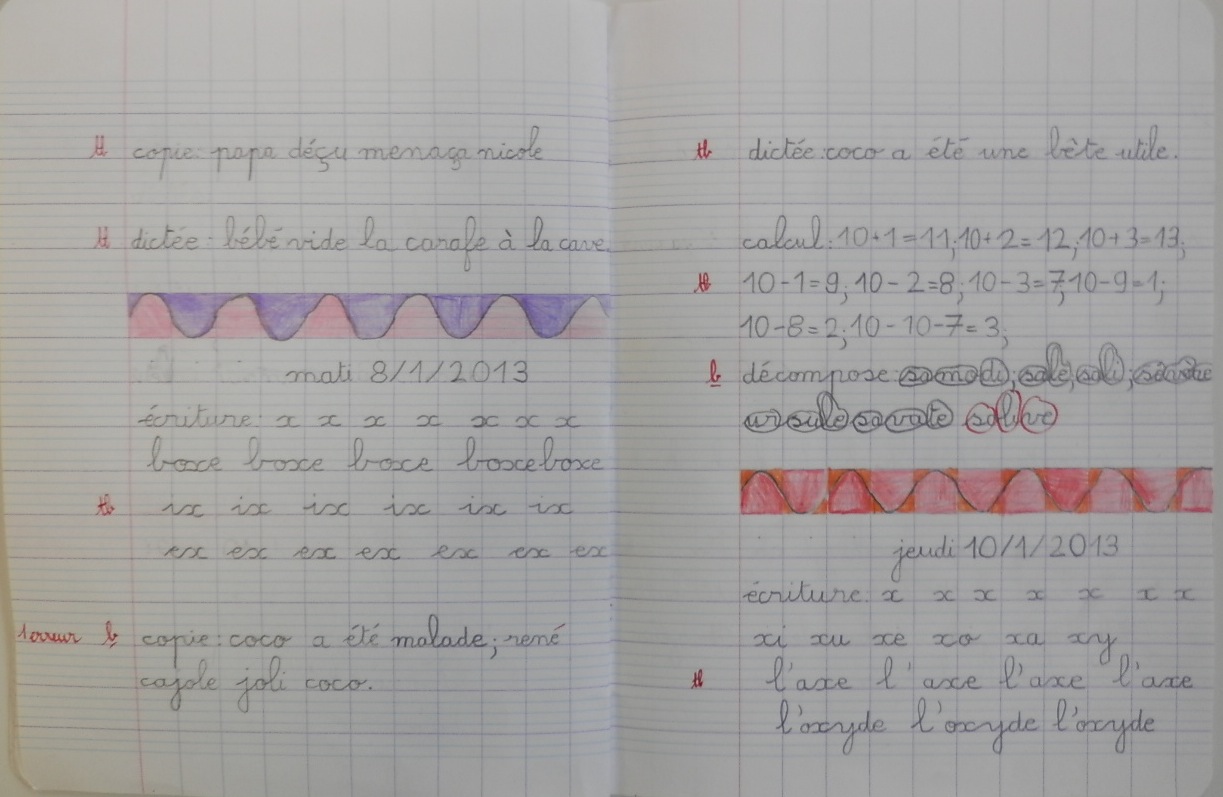 tb copie: papa déçu menaça nicole
tb dictée: bébé vide la carafe à la cave.
mati 8/1/2013
écriture: x x x x x x x
boxe boxe boxe boxe boxe
tb ix ix ix ix ix ix
ex ex ex ex ex ex ex
1 erreur b copie: coco a été malade; rené
cajole joli coco.
tb dictée: coco a été une bête utile.
calcul: 10+1=11; 10+2=12; 10+3=13;
tb 10-1=9; 10-2=8; 10-3=7; 10-9=1;
10-8=2; 10-10-7=3;
b décompose: samedi; salé; sali;
ursule savate salive
jeudi 10/1/2013
écriture: x x x x x x x
xi xu xe xo xa xy
tb l'axe l'axe l'axe l'axe
l'oxyde l'oxyde l'oxyde